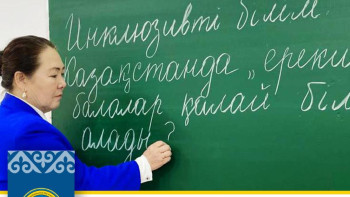 Инклюзивті білім
Қазақстанда „ ерекш
балалар қалай біл
алады?